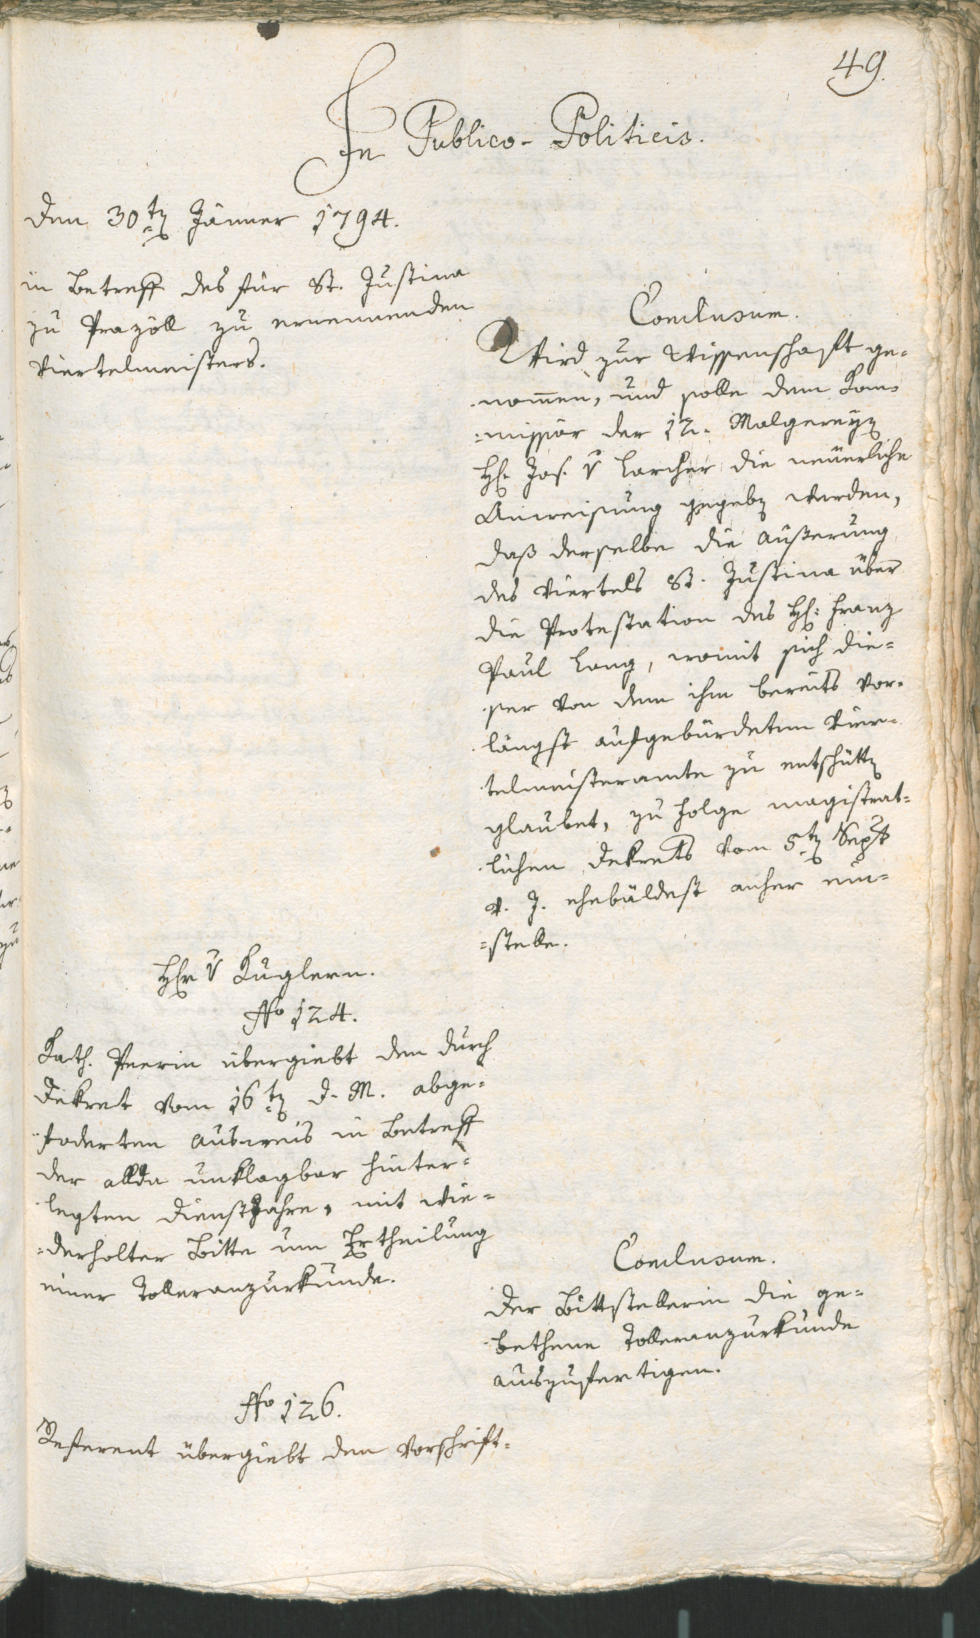 49.
In Publico-Politicis.
Den 30ten Jänner 1794.
in Betreff des für St. Justina
zu Prazöll zu ernennenden
Viertelmeisters.
Conclusum.
Wird zur Wissenschaft ge-
nommen, und solle dem Kom-
missär der 12. Malgereyen
H. Jos. v Larcher die neuerliche
Anweisung gegeben werden,
daß derselbe die Außerung
des Viertels St. Justina über
die Protestation des H: Franz
Paul Lang, womit sich die-
ser von dem ihm bereits vor-
längst aufgebürdeten Vier-
telmeisteramte zu entschütten
glaubet, zu Folge magistrat-
lichen Dekrets vom 5ten Sept
v. J. ehebäldest anher ein-
stelle.
Herr v Kuglern.
No 124.
Kath. Peerin übergiebt den durch
Dekret vom 16ten d. M. abge-
foderten Ausweis in Betreff
der allda unklagbar hinter-
legten Dienstjahre, mit wie-
derholter Bitte um Ertheilung
einer Tolleranzurkunde.
Conclusum.
Der Bittstellerin die ge-
bethene Tolleranzurkunde
auszufertigen.
No 126.
Referent übergiebt den vorschrift-